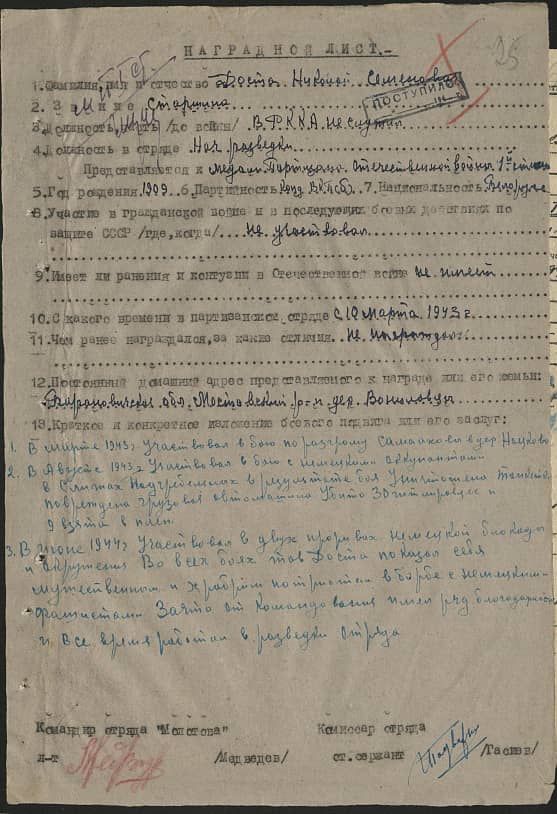 25
НАГРАДНОЙ ЛИСТ.-
1.Фамилия,имя и отчество Доста Николай Семенович
ПОСТУПИЛО
2. Звание Старшина
3.Должность,часть /до войны/ В РККА не служил
4.Должность в отряде Нач разведки
Представляется к медали Партизану Отечественной войны 1й степени
5.Год рождения 1909 .6.Партийность Канд ВКП(б). 7.Национальность Белорус
8.Участие в гражданской войне и в последующих боевых действиях по
защите СССР /где,когда/ не участвовал
9.Имеет ли ранения и контузии в Отечественной войне не имеет
10.С какого времени в партизанском отряде с 10 Марта 1943 г.
11.Чем ранее награждался,за какие отличия. Не награждался
12.Постоянный домашний адрес представляемого к награде или его семьи:
Барановичская обл. Мостовский р-н дер.
13.Краткое и конкретное изложение боевого подвига или его заслуг:
1. В Марте 1943г Участвовал в бою по разгрому Самааховы в дер
2. В Августе 1943г Участвовал в бою с немецкими оккупантами
в в результате боя Уничтожена
повреждена грузовая автомашина Убито 30 гитлеровцев и
9 взята в плен.
3. В июне 1944г Участвовал в двух прорывах Немецкой блокады
и окружения Во всех боях тов Доста показал себя
мужественным и храбрым патриотом в борьбе с немецкими
фашистами За что от Командования имел ряд благодарностей
и Все время работал в разведки отряда
Командир отряда "Молотова" Комиссар отряда
л-т /Медведев/ ст.сержант /Гасиев/